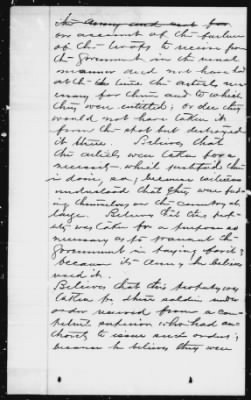 the Army and not for
on account of the failure
of the troops to receive from
the Government in the usual
manner and not have had
at the time the articles nec-
essary for them and to which
they were entitled; or else they
would not have taken it
from the spot but destroyed
it there. Believes that
the articles were taken for a
necessity which justified them
in doing so; because witness
understood that they were
themselves on the country at
large. Believes that this prop-
erty was taken for a purpose as
necessary as to
Government in paying for it;
because its Army, he believes
used it.
Believes that this property was
taken by these soldiers under
order received from a com-
petent superior who had au-
thority to issue such orders;
because he believes they were